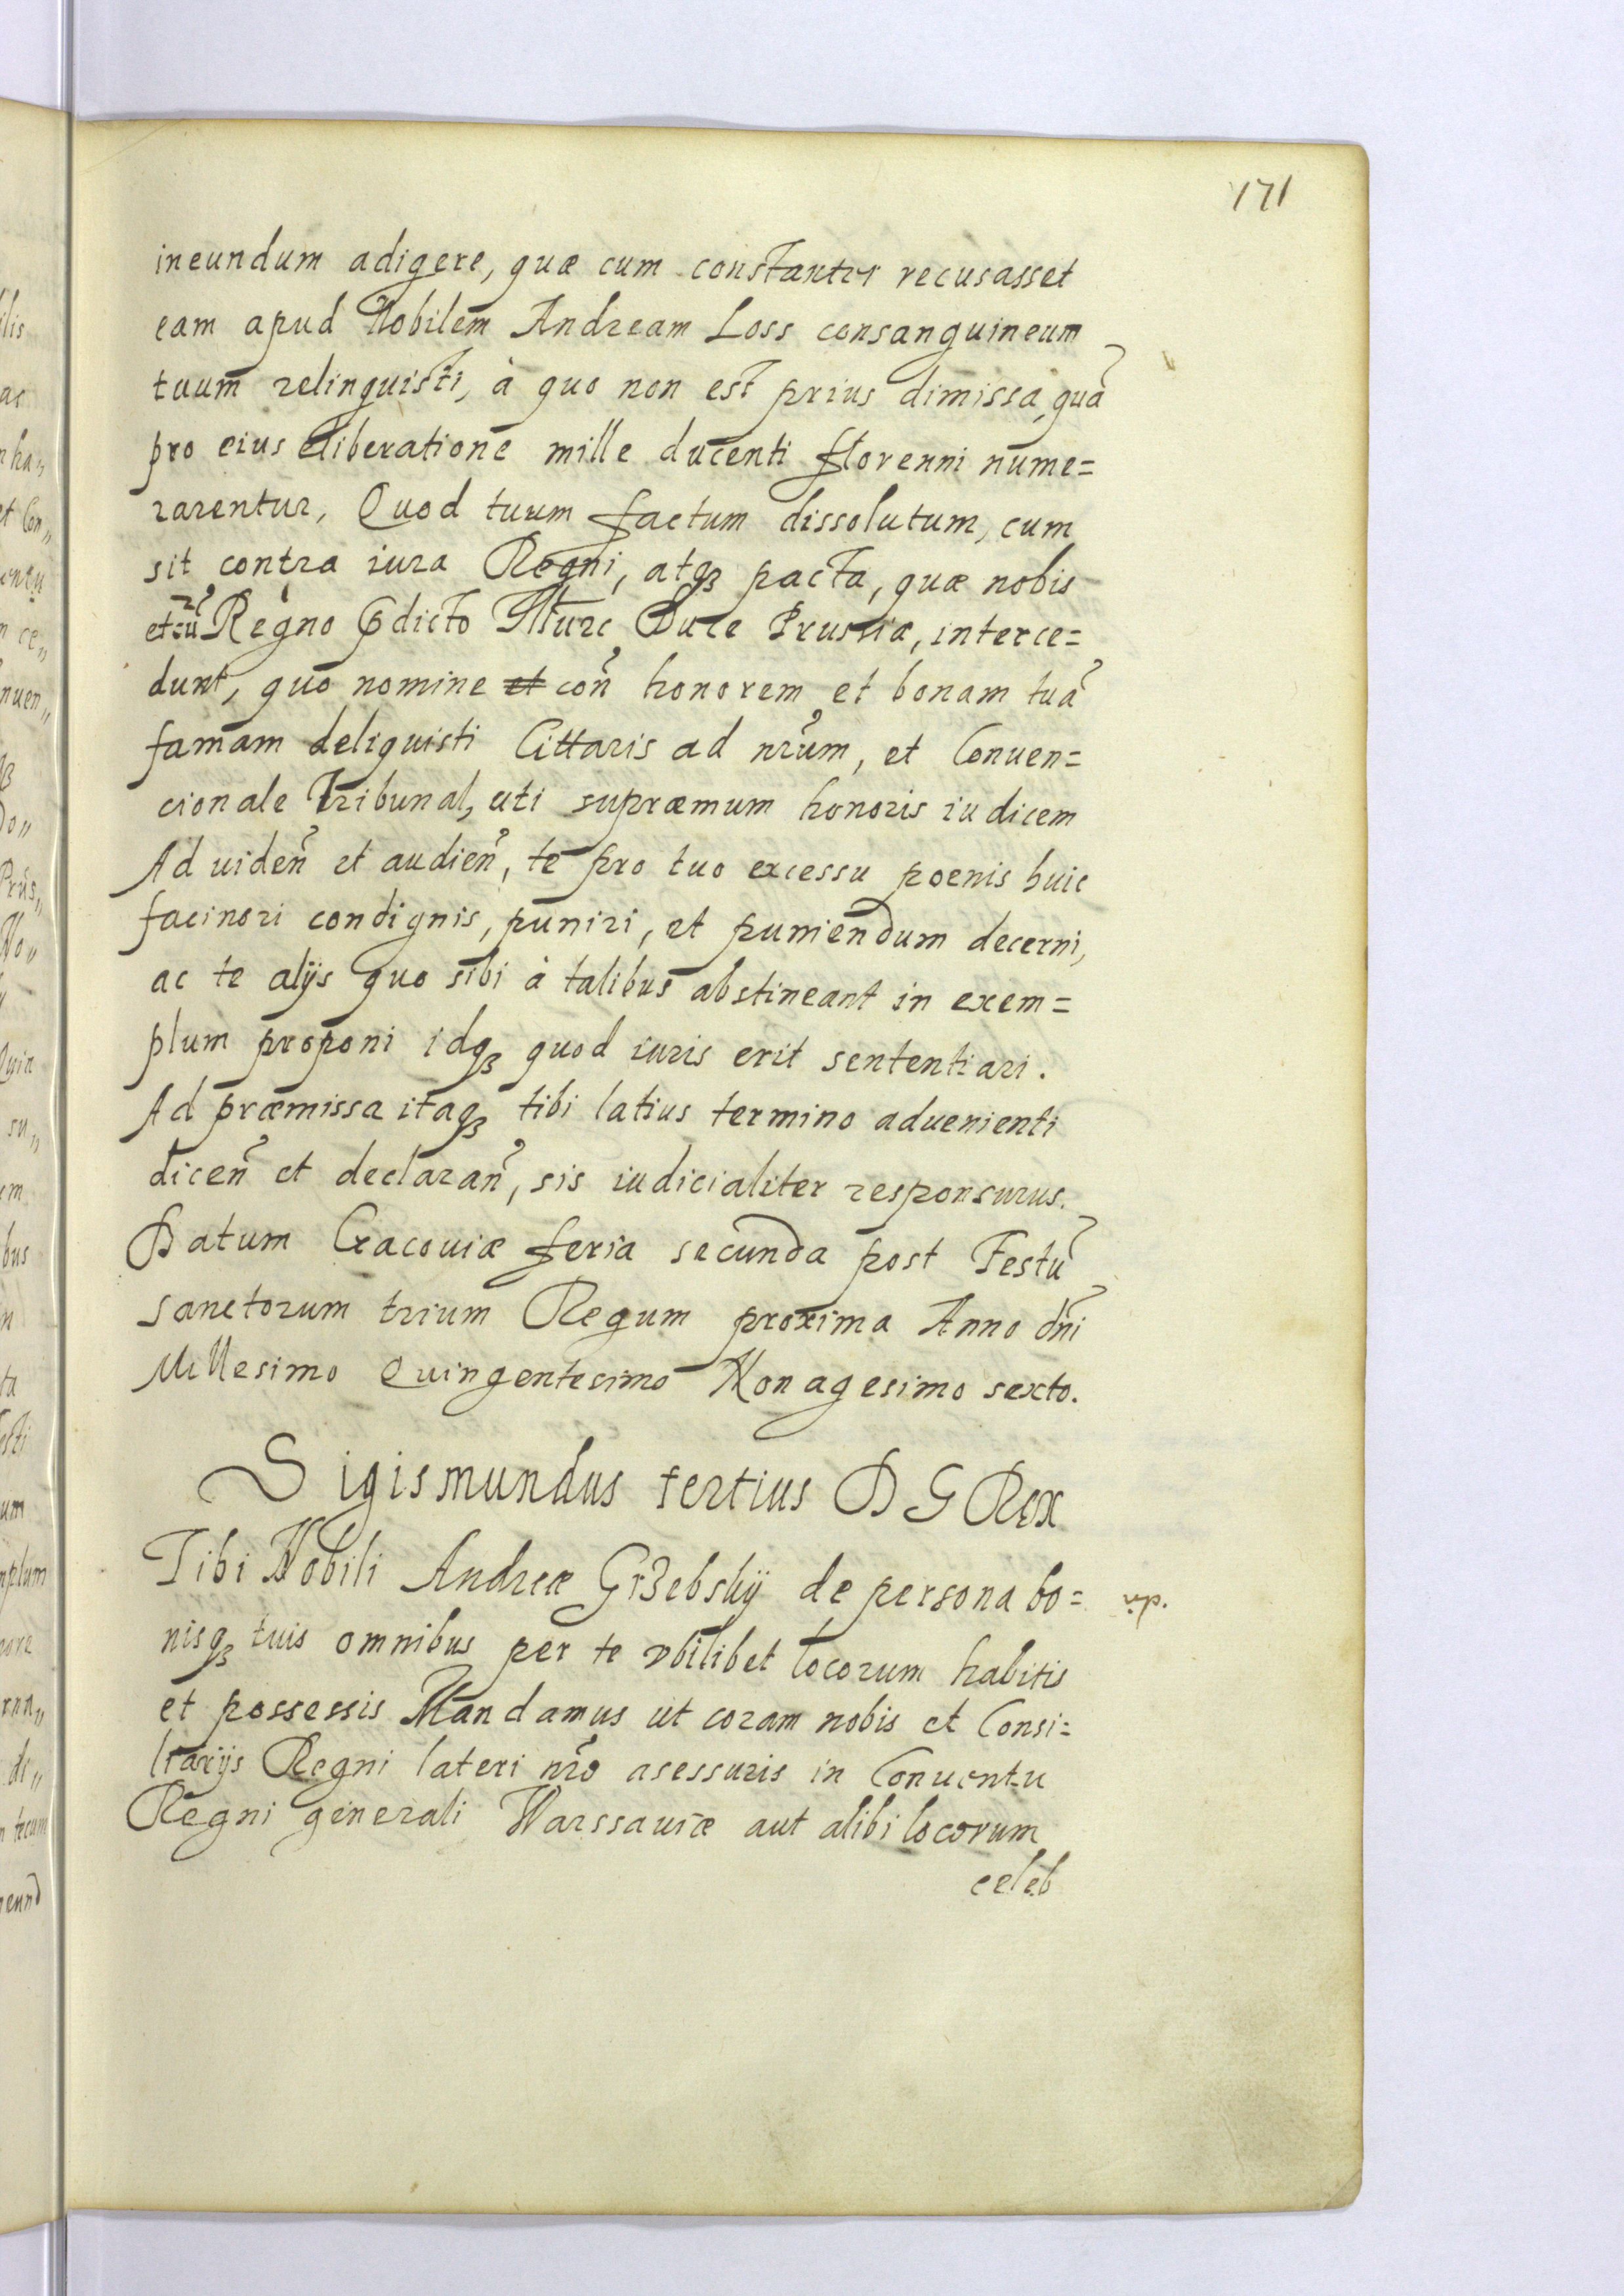 171
ineundum adigere, quæ cum constanter recusasset
eam apud Nobilem Andream Loss consanguineum
tuum relinquisti, à quo non est prius dimissa, quã
pro eius eliberatione mille ducenti florenni nume=
rarentur, Quod tuum factum dissolutum, cum
sit contra iura Regni, atqꝫ pacta, quæ nobis
Regno dicto Illure Duce Prussiæ, interce=
dunt, quo nomine et coñ honorem et bonam tuã
famam deliquisti Cittaris ad nr̃um, et Conuen=
cionale Tribunal, uti supræmum honoris iudicem
Ad uideñ et audieñ, te pro tuo excessu poenis huic
facinori condignis, puniri, et puniendum decerni,
ac te alijs quo sibi à talibus abstineant in exem=
plum proponi idqꝫ quod iuris erit sententiari.
Ad præmissa itaqꝫ tibi latius termino aduenienti
diceñ et declarañ, sis iudicialiter responsurus.
Datum Cracouiæ feria secunda post Festũ
sanctorum trium Regum proxima Anno dñi
Millesimo Quingentesimo Nonagesimo sexto.
Sigismundus tertius D G Rex
Tibi Nobili Andreæ Grzebskÿ de persona bo=
nisqꝫ tuis omnibus per te vbilibet locorum habitis
et possessis Mandamus ut coram nobis et Consi=
liarijs Regni lateri nr̃o asessuris in Conuentu
Regni generali Warssauiæ aut alibi locorum
celeb